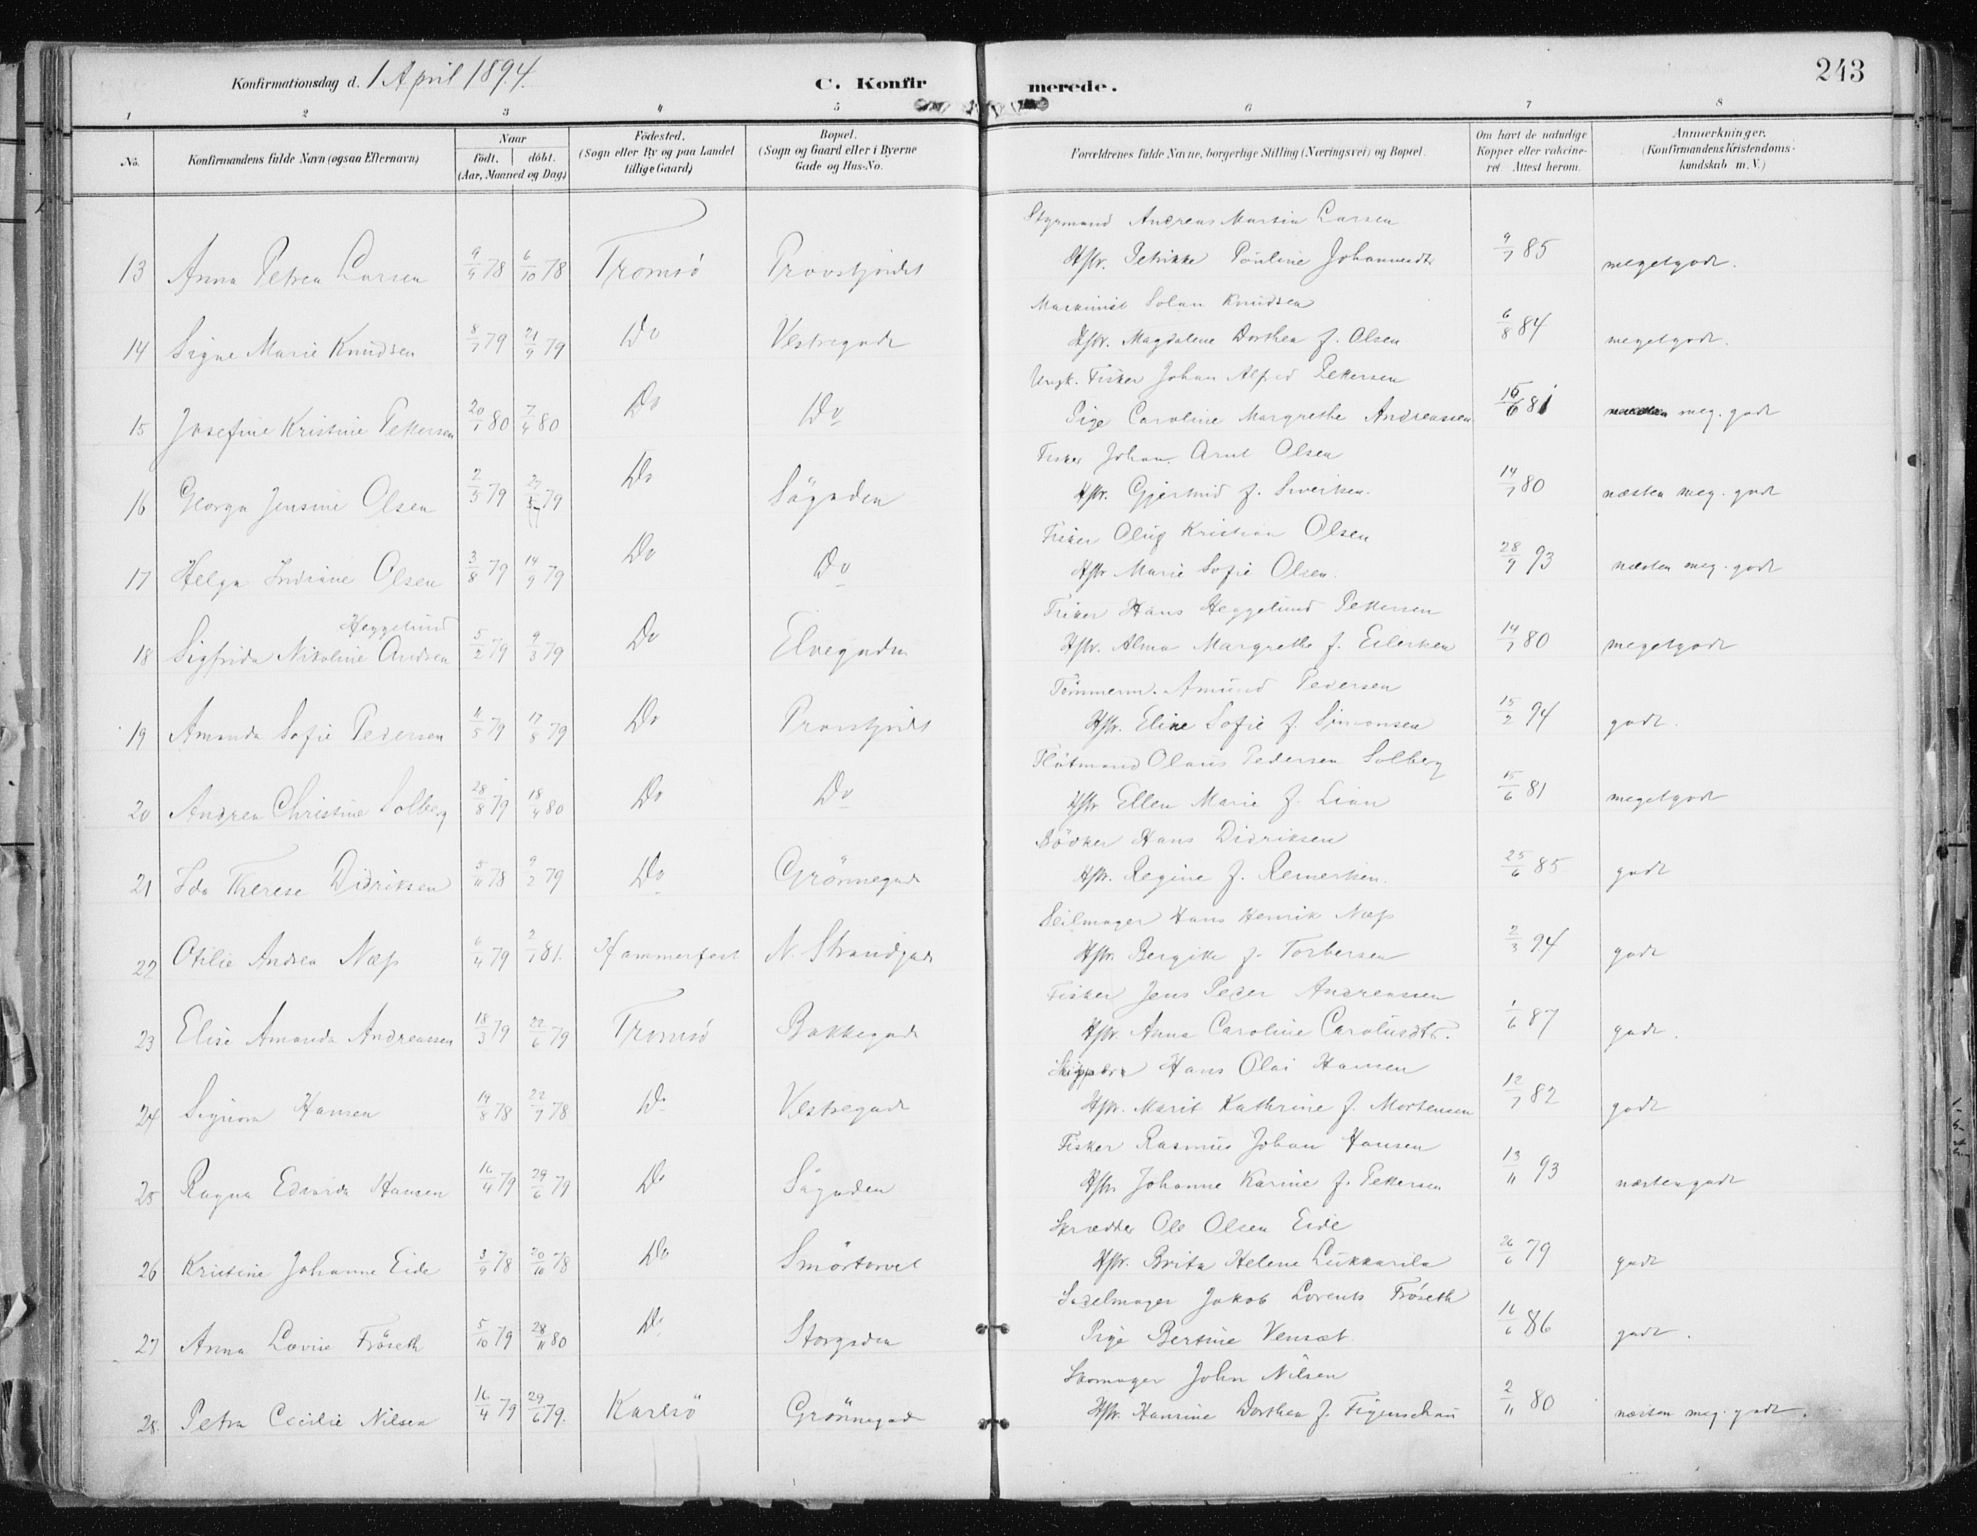 243
Konfirmationsdag d. 1 April 1894.
C. Konfir merede.
1 2 3 4 5 6 7 8
No. Konfirmandens fulde Navn (ogsaa Efternavn) Naar født. døbt. (Aar, Maaned og Dag) Fødested. (Sogn eller By og paa Landet tillige Gaard) Bopæl. (Sogn og Gaard eller i Byerne Gade og Hus-No. Forældrenes fulde Navne, borgerlige Stilling (Næringsvei) og Bopæl. Om havt de naturlige Kopper eller vakcineret. Attest herom. Anmærkninger. (Konfirmandens Kristendomskundskab m. V.)
Styrmand Andreas Martin Larsen
13 Anna Petrea Larsen 9/9 78 6/10 78 Tromsö Provstjordet Hstr. Petrikke Pauline Johannesdtr 9/7 85 megetgodt.
Maskinist Solan Knudsen
14 Signe Marie Knudsen 8/7 79 21/9 79 Do Vestregade Hstr. Magdalene Dorthea f. Olsen 6/8 84 megetgodt.
Ungk. Fisker Johan Alfred Pettersen
15 Josefine Kristine Pettersen 20/1 80 7/4 80 Do Do Pige Caroline Margrethe Andreassen 16/6 81 meg. godt
Fisker Johan Arnt Olsen
16 Georga Jensine Olsen 2/3 79 79 Do Sögaden Hstr. Gjertrud f. Sivertsen. 14/7 80 næsten meg. godt
Fisker Oluf Kristian Olsen
17 Helga Indiane Olsen 3/8 79 14/9 79 Do Do Hstr Marie Sofie Olsen. 28/9 93 næsten meg. godt
Heggelund Fisker Hans Heggelund Pettersen
18 Sigfrida Nikoline Andrea 5/2 79 9/3 79 Do Elvegaden Hstr. Alma Margrethe f. Eilertsen 14/7 80 megetgodt
Tömmerm. Amund Pedersen
19 Amanda Sofie Pedersen 11/5 79 17/8 79 Do Provstjordet Hstr. Eline Sofie f. Simonsen 15/2 94 godt.
Flötmand Olaus Pedersen Solberg
20 Andrea Christine Solberg 28/8 79 18/4 80 Do Do Hstr Ellen Marie f. Lian 15/6 81 megetgodt
Bödker Hans Didriksen
21 Ida Therese Didriksen 5/11 78 9/2 79 Do Grönnegad Hstr. Regine f. Reinertsen. 25/6 85 godt
Seilmager Hans Henrik Næss
22 Otilie Andrea Næss 6/4 79 2/7 81. Hammerfest N. Strandgad Hstr. Bergitte f. Torbersen 2/3 94 godt
Fisker Jens Peder Andreassen
23 Elise Amanda Andreassen 18/3 79 22/6 79 Tromsö Bakkegad Hstr. Anna Caroline Carolusdtr. 1/6 87 godt.
Skipper Hans Olai Hansen
24 Signora Hansen 19/8 78 22/7 78 Do Vestregade Hstr. Marit Kathrine f. Mortensen 12/7 82 godt
Fisker Rasmus Johan Hansen
25 Ragna Edvarda Hansen 16/4 79 29/6 79 Do Sögaden Hstr Johanne Karine f. Pettersen 13/11 93 næstengodt
Skrædder Ole Olsen Eide
26 Kristine Johanne Eide 3/9 78 20/10 78 Do Smörtorvet Hstr. Brita Helene Lukkarila 26/6 79 godt
Sadelmager Jakob Lorents Fröseth
27 Anna Lovise Fröseth 5/10 79 28/11 80 Do Storgaden Pige Bertine Vensæt 16/6 86 godt.
Skomager John Nilsen
28 Petra Cecilie Nilsen 16/4 79 29/6 79. Karlsö Grönnegad Hstr. Hansine Dorthea f. Figenschau 2/11 80 næsten meg. godt.